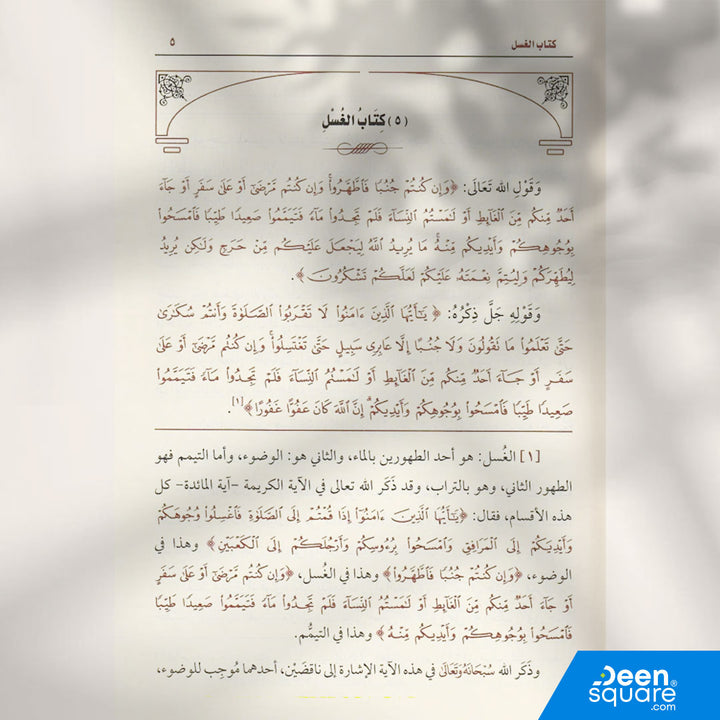 كتاب الغسل ٥
(٥) كِتَابُ الغُسْلِ
وَقَوْلِ الله تَعَالَى: ﴿وَإِن كُنتُمْ جُنُبًا فَاطَّهَّرُوا۟ وَإِن كُنتُم مَّرْضَىٰٓ أَوْ عَلَىٰ سَفَرٍ أَوْ جَآءَ
أَحَدٌ مِّنكُم مِّنَ الْغَآئِطِ أَوْ لَـٰمَسْتُمُ النِّسَآءَ فَلَمْ تَجِدُوا۟ مَآءً فَتَيَمَّمُوا۟ صَعِيدًا طَيِّبًا فَامْسَحُوا۟
بِوُجُوهِكُمْ وَأَيْدِيكُم مِّنْهُ ۚ مَا يُرِيدُ اللَّهُ لِيَجْعَلَ عَلَيْكُم مِّنْ حَرَجٍ وَلَـٰكِن يُرِيدُ
لِيُطَهِّرَكُمْ وَلِيُتِمَّ نِعْمَتَهُۥ عَلَيْكُمْ لَعَلَّكُمْ تَشْكُرُونَ﴾.
وَقَوْلِهِ جَلَّ ذِكْرُهُ: ﴿يَـٰٓأَيُّهَا الَّذِينَ ءَامَنُوا۟ لَا تَقْرَبُوا۟ الصَّلَوٰةَ وَأَنتُمْ سُكَـٰرَىٰ
حَتَّىٰ تَعْلَمُوا۟ مَا تَقُولُونَ وَلَا جُنُبًا إِلَّا عَابِرِى سَبِيلٍ حَتَّىٰ تَغْتَسِلُوا۟ ۚ وَإِن كُنتُم مَّرْضَىٰٓ أَوْ عَلَىٰ
سَفَرٍ أَوْ جَآءَ أَحَدٌ مِّنكُم مِّنَ الْغَآئِطِ أَوْ لَـٰمَسْتُمُ النِّسَآءَ فَلَمْ تَجِدُوا۟ مَآءً فَتَيَمَّمُوا۟
صَعِيدًا طَيِّبًا فَامْسَحُوا۟ بِوُجُوهِكُمْ وَأَيْدِيكُمْ ۗ إِنَّ اللَّهَ كَانَ عَفُوًّا غَفُورًا﴾[١].
[١] الغُسل: هو أحد الطهورين بالماء، والثاني هو: الوضوء، وأما التيمم فهو
الطهور الثاني، وهو بالتراب، وقد ذَكَر الله تعالى في الآية الكريمة -آية المائدة- كل
هذه الأقسام، فقال: ﴿يَـٰٓأَيُّهَا الَّذِينَ ءَامَنُوٓا۟ إِذَا قُمْتُمْ إِلَى الصَّلَوٰةِ فَاغْسِلُوا۟ وُجُوهَكُمْ
وَأَيْدِيَكُمْ إِلَى الْمَرَافِقِ وَامْسَحُوا۟ بِرُءُوسِكُمْ وَأَرْجُلَكُمْ إِلَى الْكَعْبَيْنِ﴾ وهذا في
الوضوء، ﴿وَإِن كُنتُمْ جُنُبًا فَاطَّهَّرُوا۟﴾ وهذا في الغُسل، ﴿وَإِن كُنتُم مَّرْضَىٰٓ أَوْ عَلَىٰ سَفَرٍ
أَوْ جَآءَ أَحَدٌ مِّنكُم مِّنَ الْغَآئِطِ أَوْ لَـٰمَسْتُمُ النِّسَآءَ فَلَمْ تَجِدُوا۟ مَآءً فَتَيَمَّمُوا۟ صَعِيدًا طَيِّبًا
فَامْسَحُوا۟ بِوُجُوهِكُمْ وَأَيْدِيكُم مِّنْهُ﴾ وهذا في التيمُّم.
وذَكَر الله سُبْحَانَهُ وَتَعَالَى في هذه الآية الإشارة إلى ناقضَيْن، أحدهما مُوجِب للوضوء،
Deen
square®
.com